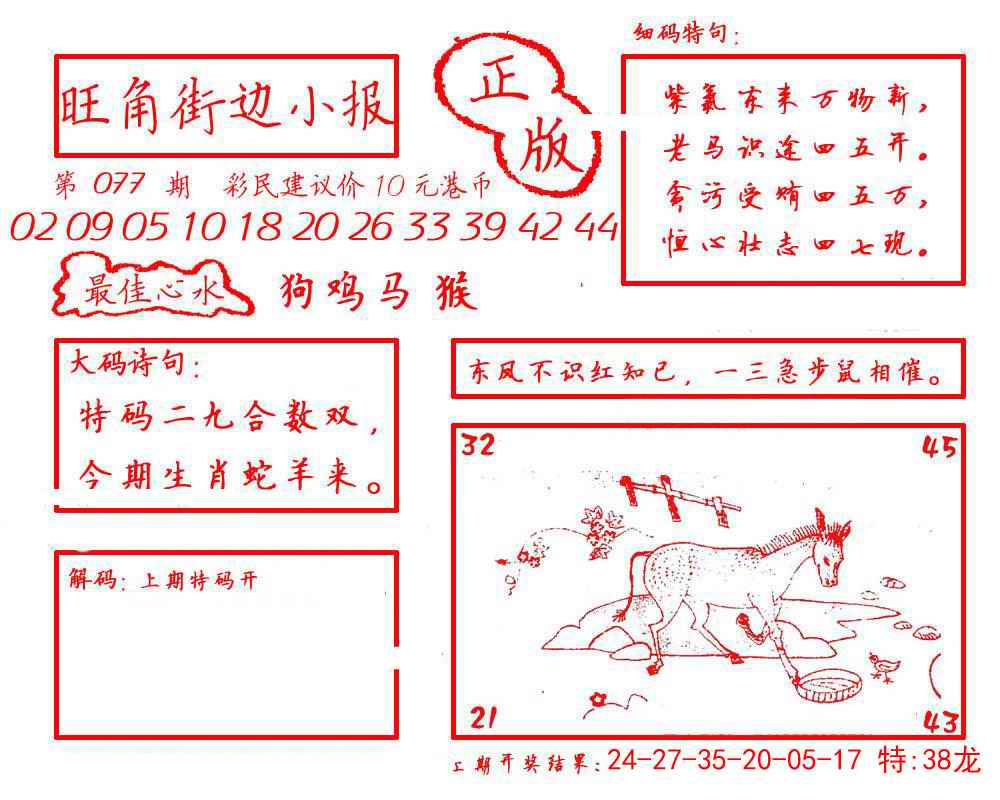 旺角街边小报
正版
第 077 期 彩民建议价10元港币
02 09 05 10 18 20 26 33 39 42 44
最佳心水 狗鸡马猴
细码特句：
紫氣东来万物新，
老马识途四五开。
贪污受贿四五万，
恒心壮志四七现。
大码诗句：
特码二九合数双，
今期生肖蛇羊来。
解码：上期特码开
东风不识红知已，一三急步鼠相催。
32 45
21 43
上期开奖结果：24-27-35-20-05-17 特:38龙